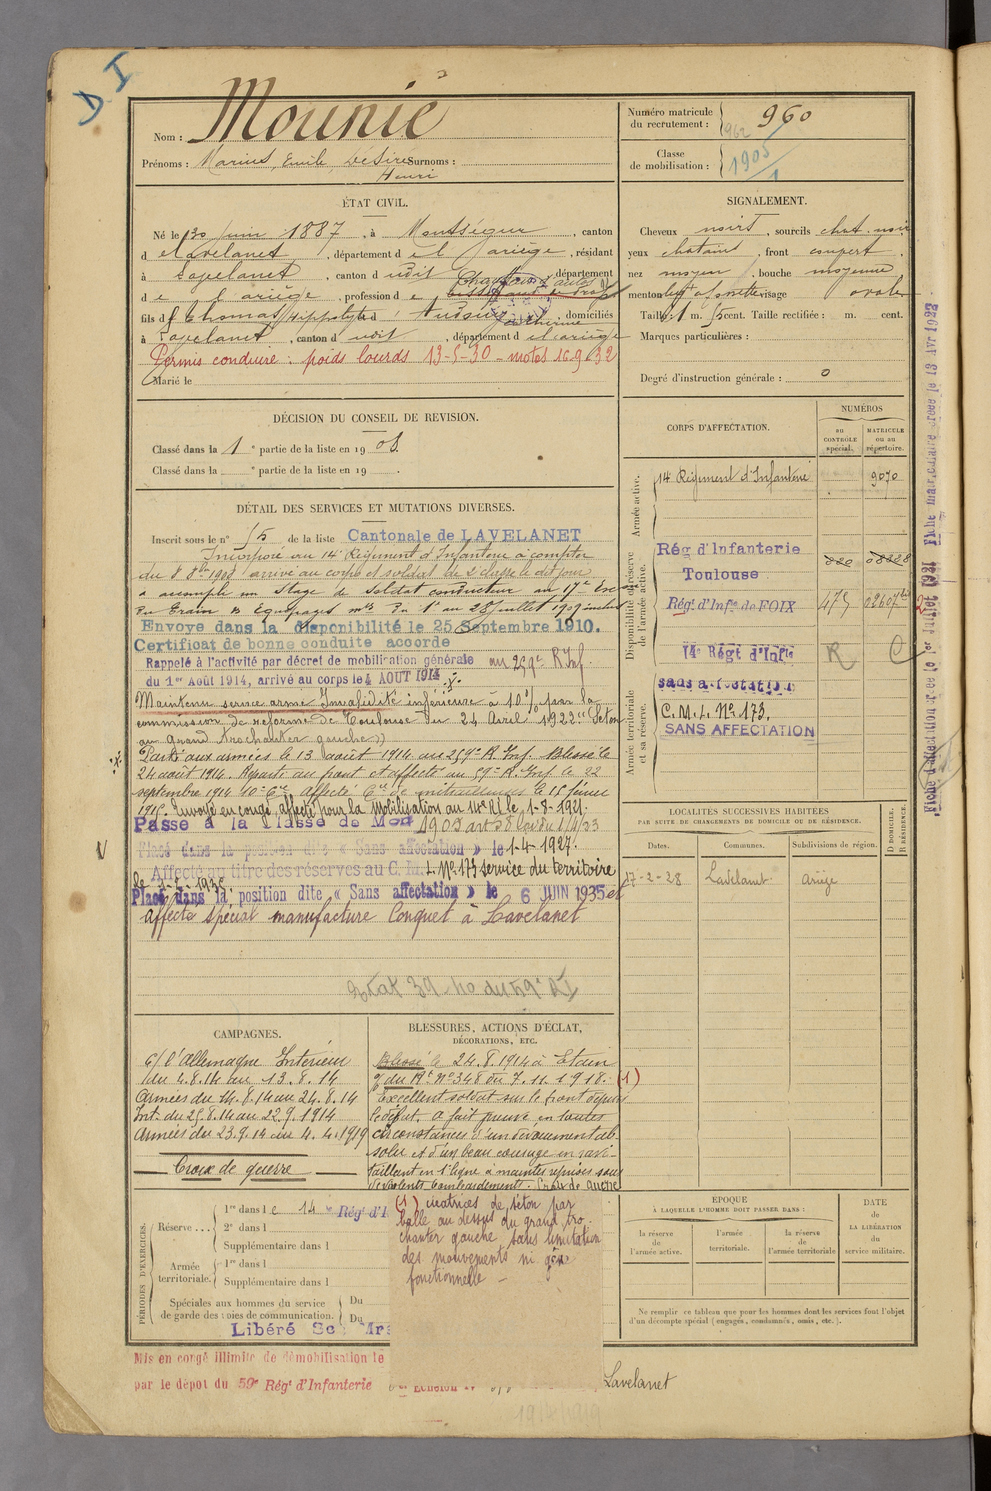 D I
Nom : Mounié
Prénoms : Marius, Emile, Désiré Surnoms :
Henri
Numéro matricule
du recrutement : 960
962
Classe
de mobilisation : 1905/1
ÉTAT CIVIL.
Né le 30 juin 1887, à Montségur, canton
de Lavelanet, département de l'Ariège, résidant
à Lavelanet, canton dudit, département
Chauffeur d'autos
de l'Ariège, profession de
fils de Thomas Hippolyte et d , domiciliés
à Lavelanet, canton dudit, département de l'Ariège
Permis conduire : poids lourds 13-5-30 - motos 16.9.32
Marié le
SIGNALEMENT.
Cheveux noirs, sourcils chat. noir
yeux chatains, front couvert,
nez moyen, bouche moyenne
menton visage ovale
Taille : 1 m. cent. Taille rectifiée : m. cent.
Marques particulières :
Degré d'instruction générale : 0
DÉCISION DU CONSEIL DE REVISION.
Classé dans la 1e partie de la liste en 1908.
Classé dans la e partie de la liste en 19 .
DÉTAIL DES SERVICES ET MUTATIONS DIVERSES.
Inscrit sous le n° 15 de la liste Cantonale de LAVELANET
Incorporé au 14e Régiment d'Infanterie à compter
du 8 8bre 1908 arrivé au corps et soldat de 2e classe le dit jour
a accompli un stage de soldat conducteur au 17e Esc
du Train des Equipages mres du 1er au 28 juillet 1909 inclus
Envoyé dans la disponibilité le 25 Septembre 1910.
Certificat de bonne conduite accordé
Rappelé à l'activité par décret de mobilisation générale au 259e R Inf
du 1er Août 1914, arrivé au corps le 4 AOUT 1914 .x.
Maintenu service armé Invalidité inférieure à 10% par la
commission de réforme de Toulouse du 24 Avril 1923 "(Séton
au grand trochanter gauche)"
.x. Parti aux armées le 13 août 1914 au 259e R. Inf. Blessé le
24 août 1914. Reparti au front et affecté au 59e R. Inf. le 22
septembre 1914 10e Cie Affecté Cie de mitrailleuses le 15 février
1916. Envoyé en congé, affecté pour la mobilisation au 14e RI le 1-8-1921.
Passé à la Classe de Mon 1905 art 58 loi du 1/4/23
Placé dans la position dite « Sans affectation » le 1-4-1927.
Affecté au titre des réserves au C. M. L. No 173 service du territoire
Placé dans la position dite « Sans affectation » le 6 JUIN 1935 et
affecté spécial manufacture Conquet à Lavelanet
CORPS D'AFFECTATION.
NUMÉROS
au
contrôle
spécial.
MATRICULE
ou au
répertoire.
Armée active.
14 Régiment d'Infanterie 9070
Disponibilité ou réserve
de l'armée active.
Rég d'Infanterie
Toulouse
Rég. d'Infie de FOIX 475
14e Régt d'Infie R
Armée territoriale
et sa réserve.
sans affectation
C. M. L. No 173.
SANS AFFECTATION
LOCALITÉS SUCCESSIVES HABITÉES
PAR SUITE DE CHANGEMENTS DE DOMICILE OU DE RÉSIDENCE.
Dates. Communes. Subdivisions de région. D DOMICILE. R RÉSIDENCE.
17-2-28 Lavelanet Ariège
CAMPAGNES.
C/ l'Allemagne Intérieur
du 4.8.14 au 13.8.14
Armées du 14.8.14 au 24.8.14
Int. du 25.8.14 au 22.9.1914
Armées du 23.9.14 au 4.4.1919
Croix de guerre
BLESSURES, ACTIONS D'ÉCLAT,
DÉCORATIONS, ETC.
Blessé le 24.8.1914 à Etain
O/ du Rt No 348 du 7.11.1918. (1)
Excellent soldat sur le front depuis
le début, a fait preuve en toutes
circonstances d'un dévouement ab-
solu et d'un beau courage en ravi-
taillant en 1e ligne à maintes reprises sous
de violents bombardements. Croix de guerre
(1) cicatrices de séton par
balle au dessus du grand tro-
chanter gauche sans limitation
des mouvements ni gêne
fonctionnelle -
PÉRIODES D'EXERCICES.
Réserve
1re dans le 14e Régt d'I
2e dans l
Supplémentaire dans l
Armée
territoriale.
1re dans l
Supplémentaire dans l
Spéciales aux hommes du service
de garde des voies de communication.
Du
Du
Libéré
Mis en congé illimité de démobilisation le
par le dépôt du 59e Régt d'Infanterie
Lavelanet
ÉPOQUE
À LAQUELLE L'HOMME DOIT PASSER DANS :
la réserve
de
l'armée active.
l'armée
territoriale.
la réserve
de
l'armée territoriale
DATE
de
LA LIBÉRATION
du
service militaire.
Ne remplir ce tableau que pour les hommes dont les services font l'objet
d'un décompte spécial (engagés, condamnés, omis, etc.).
Fiche d'affectation créée le 1er Juillet 1921 Fiche matriculaire créée le 13 Avr 1922